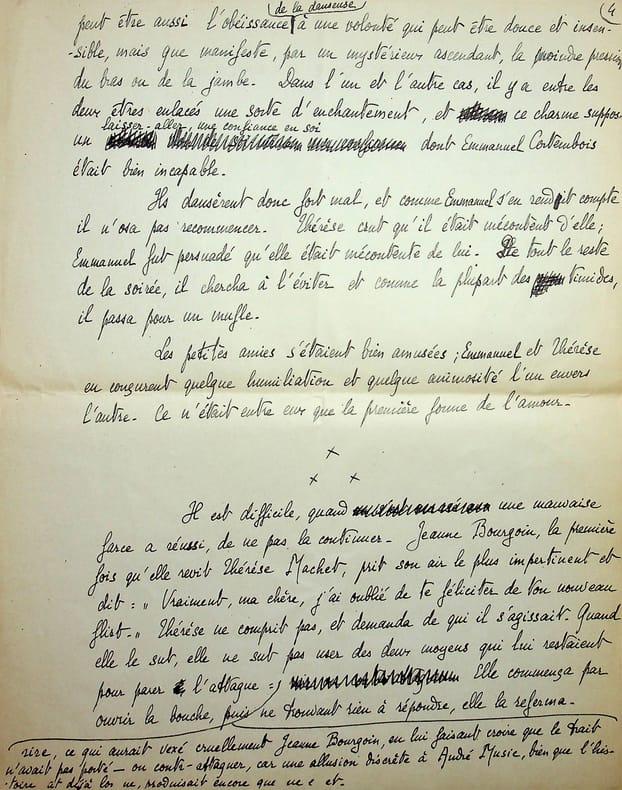 de la danseuse
4
peut être aussi l'obéissance à une volonté qui peut être douce et insen-
-sible, mais que manifeste, par un mystérieux ascendant, la moindre pression
du bras ou de la jambe. Dans l'un et l'autre cas, il y a entre les
deux êtres enlacés une sorte d'enchantement, et ce charme suppos
laisser-aller, une confiance en soi
un dont Emmanuel Cortembois
était bien incapable.
Ils dansèrent donc fort mal, et comme Emmanuel s'en rendit compte
il n'osa pas recommencer. Thérèse crut qu'il était mécontent d'elle ;
Emmanuel fut persuadé qu'elle était mécontente de lui. De tout le reste
de la soirée, il chercha à l'éviter et comme la plupart des timides,
il passa pour un mufle.
Les petites amies s'étaient bien amusées ; Emmanuel et Thérèse
en conçurent quelque humiliation et quelque animosité l'un envers
l'autre. Ce n'était entre eux que la première forme de l'amour.
x
x x
Il est difficile, quand une mauvaise
farce a réussi, de ne pas la continuer. Jeanne Bourgoin, la première
fois qu'elle revit Thérèse Machet, prit son air le plus impertinent et
dit : " Vraiment, ma chère, j'ai oublié de te féliciter de ton nouveau
flirt. " Thérèse ne comprit pas, et demanda de qui il s'agissait. Quand
elle le sut, elle ne sut pas user des deux moyens qui lui restaient
pour parer l'attaque : Elle commença par
ouvrir la bouche, puis ne trouvant rien à répondre, elle la referma.
rire, ce qui aurait vexé cruellement Jeanne Bourgoin, en lui faisant croire que le trait
n'avait pas porté — ou contr-attaquer, car une allusion discrète à André Musie, bien que l'his-
-toire déjà produisait encore que